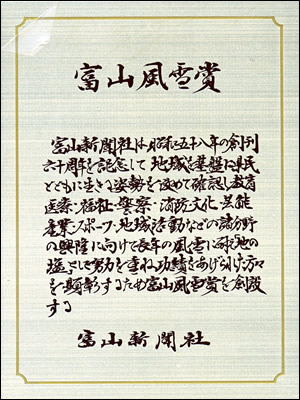 富山風雪賞
富山新聞社は昭和五十八年の創刊
六十周年を記念して地域を基盤に県民
とともに生きる姿勢を改めて確認し教育
医療・福祉・警察・消防文化・芸能
産業・スポーツ・地域活動などの諸分野
の興隆に向けて長年の風雪に耐え地の
塩として努力を重ね功績をあげられた方々
を顕彰するため富山風雪賞を創設
する
富山新聞社